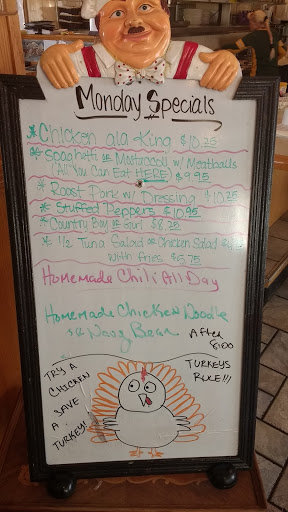 Monday Specials
* Chicken ala King $10.25
* Spaghetti or Mostaccoli w/ Meatballs
(All You Can Eat HERE) $9.95
* Roast Pork w/ Dressing $10.25
* Stuffed Peppers $10.95
* Country Boy or Girl $8.25
* 1/2 Tuna Salad or Chicken Salad
with fries $5.75
Homemade Chili All Day
Homemade Chicken Noodle
or Navy Bean
After
TRY A
CHICKEN
SAVE
A
TURKEY!
TURKEYS
RULE!!!